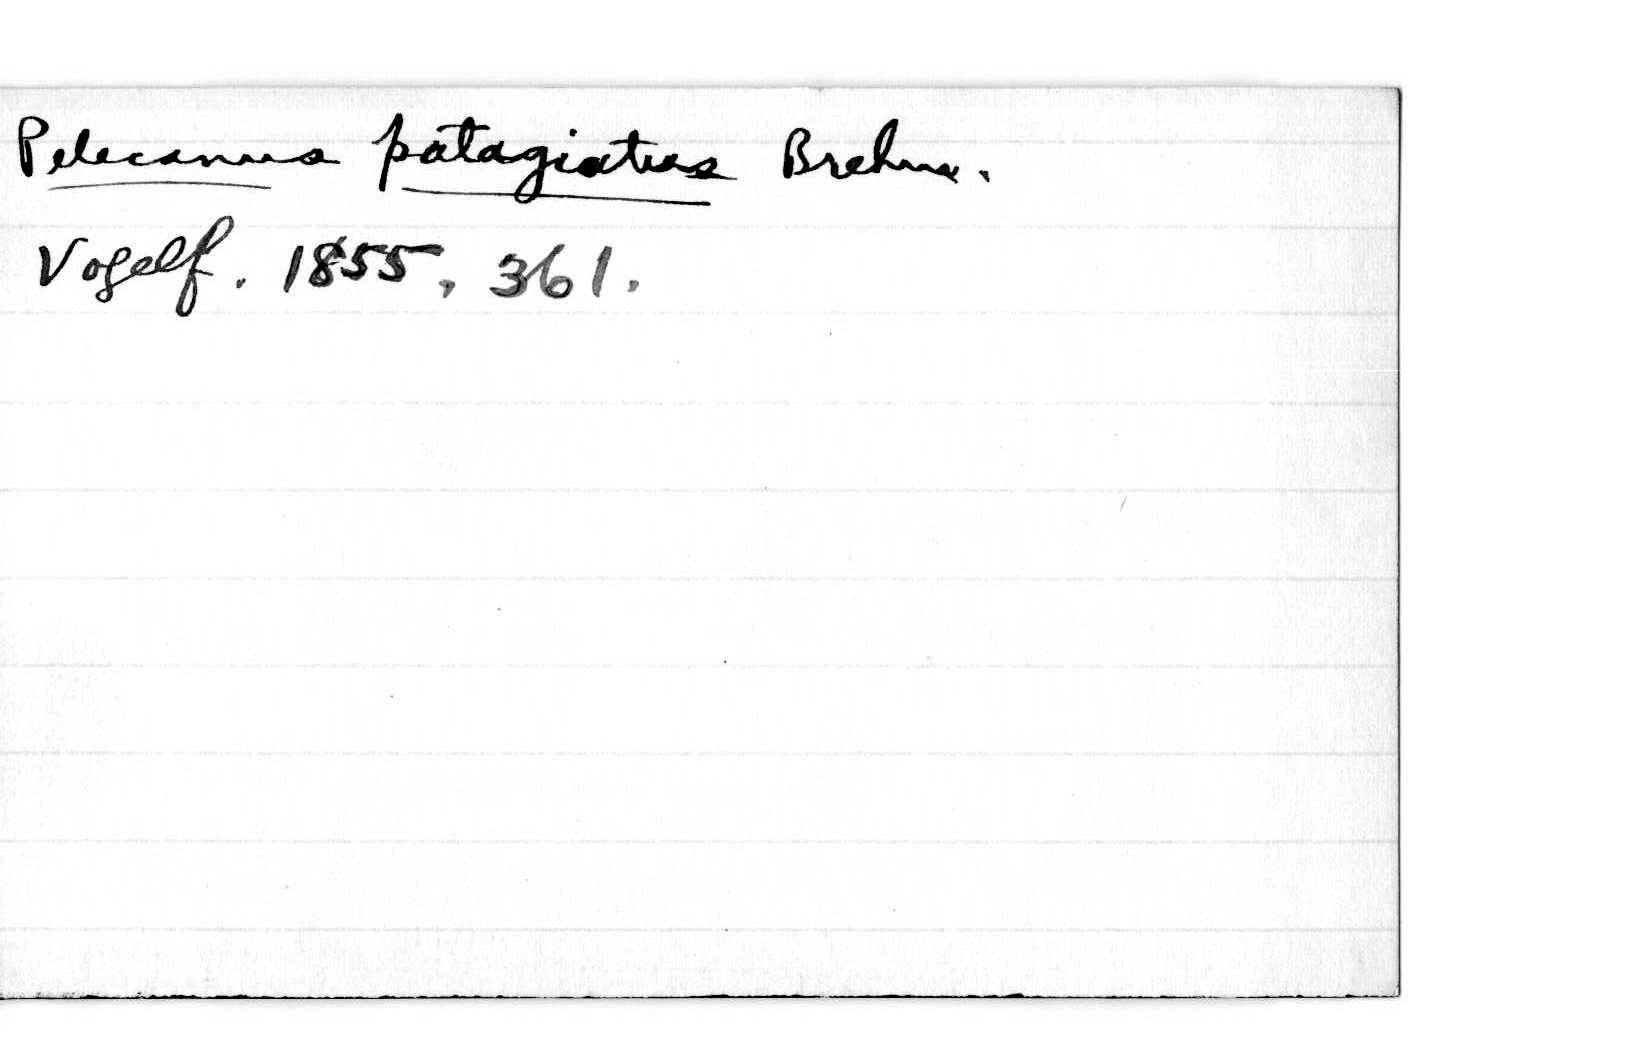 Pelecanus patagiatus Brehm.
Vogelf. 1855, 361.